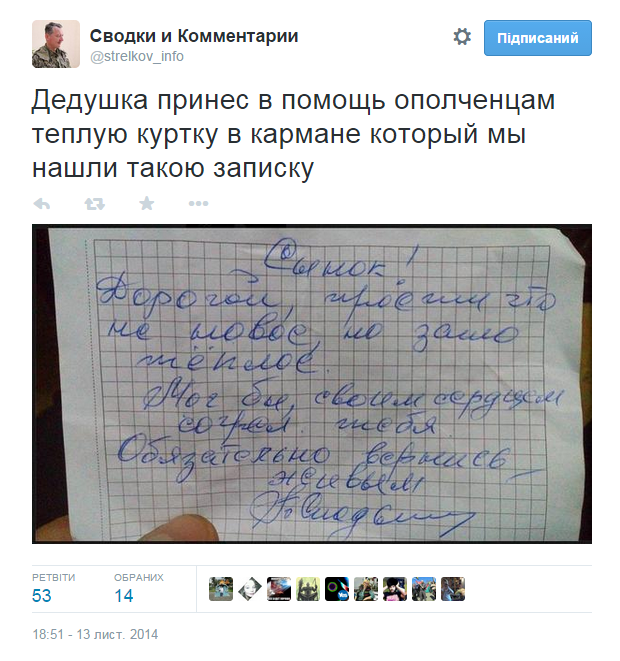 Сводки и Комментарии
@strelkov_info
Підписаний
Дедушка принес в помощь ополченцам
теплую куртку в кармане который мы
нашли такою записку
Сынок!
Дорогой, прости что
не новое, но зато
тёплое.
Мог бы, своим сердцем
согрел тебя.
Обязательно вернись
живым
РЕТВІТИ
ОБРАНИХ
53
14
18:51 - 13 лист. 2014